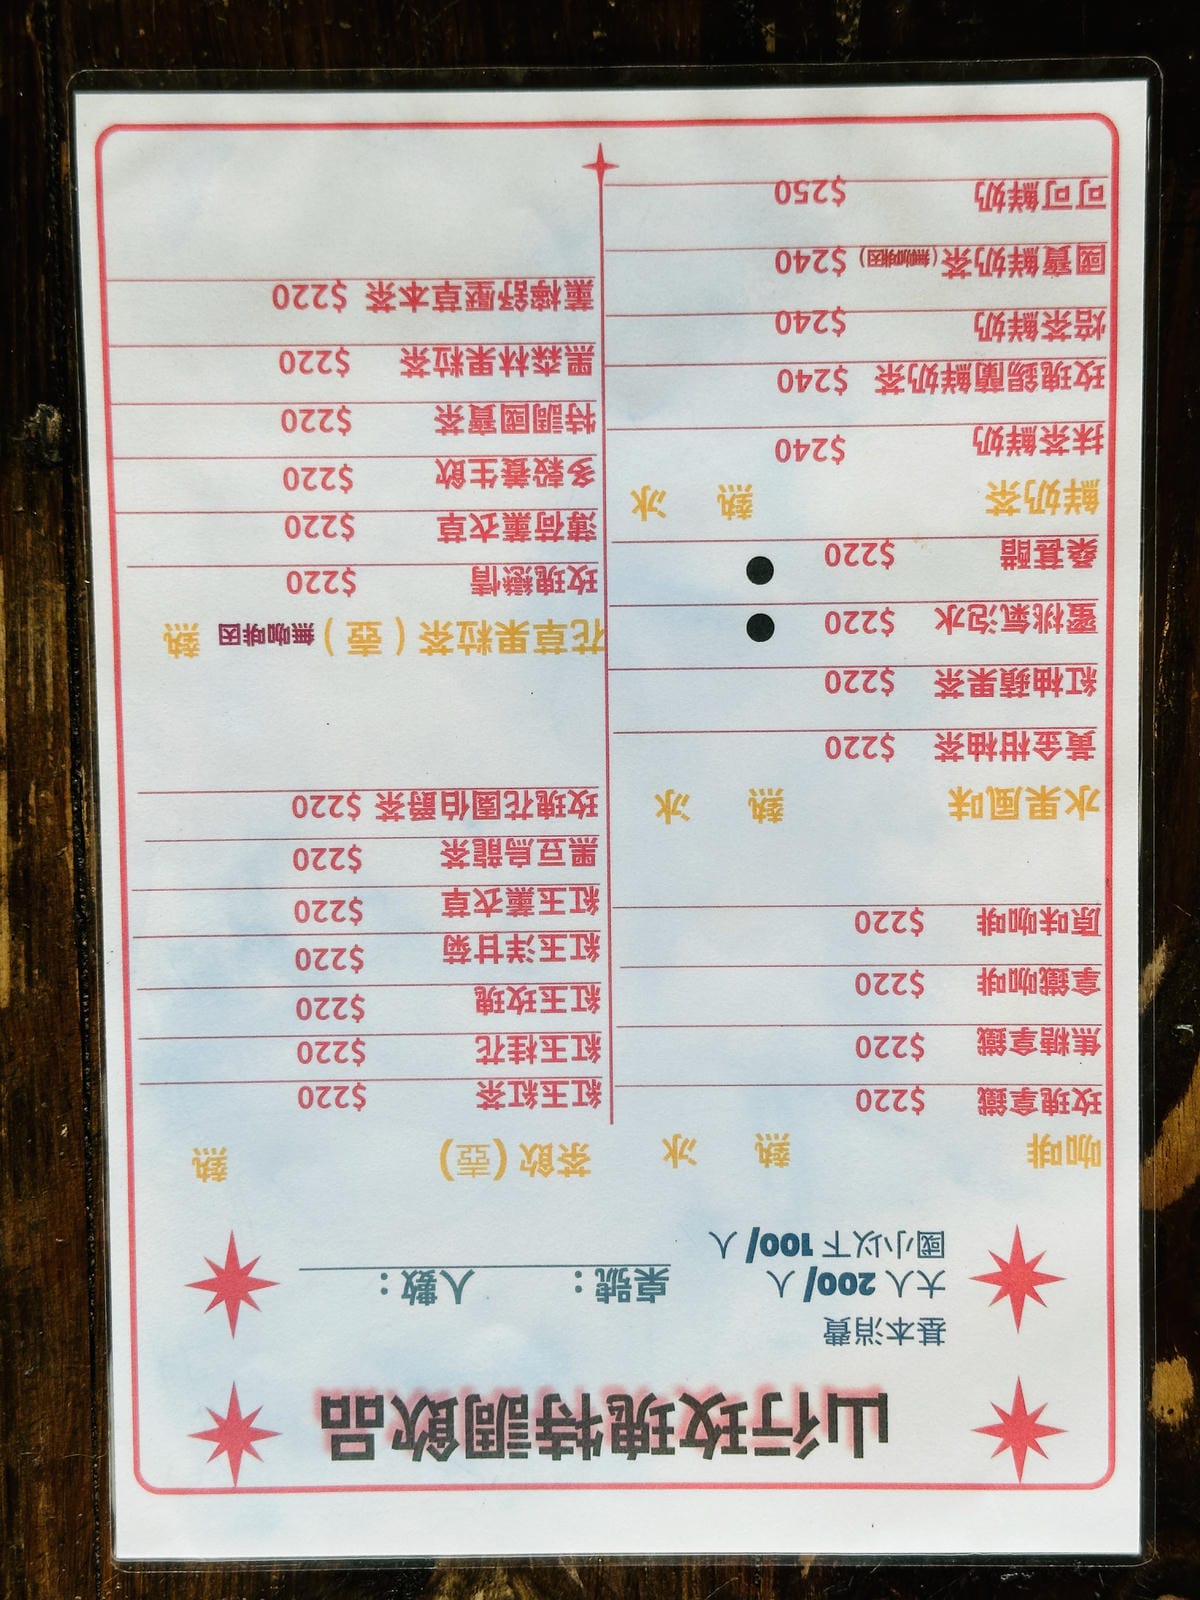 山行玫瑰特調飲品
基本消費
大人 200/人
國小以下 100/人
桌號： 人數：
咖啡 熱 冰
玫瑰拿鐵 $220
焦糖拿鐵 $220
拿鐵咖啡 $220
原味咖啡 $220
水果風味 熱 冰
黃金柑柚茶 $220
紅柚蘋果茶 $220
蜜桃氣泡水 $220 ●
桑葚醋 $220 ●
鮮奶茶 熱 冰
抹茶鮮奶 $240
玫瑰錫蘭鮮奶茶 $240
焙茶鮮奶 $240
國寶鮮奶茶(無咖啡因) $240
可可鮮奶 $250
茶飲(壺) 熱
紅玉紅茶 $220
紅玉桂花 $220
紅玉玫瑰 $220
紅玉洋甘菊 $220
紅玉薰衣草 $220
黑豆烏龍茶 $220
玫瑰花園伯爵茶 $220
花草果粒茶(壺) 無咖啡因 熱
玫瑰戀情 $220
薄荷薰衣草 $220
多穀養生飲 $220
特調國寶茶 $220
黑森林果粒茶 $220
薰檸舒壓草本茶 $220